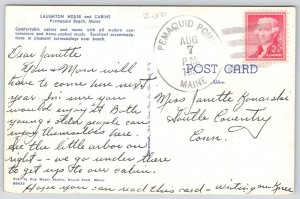 LAUGHTON HOUSE and CABINS
Pemaquid Beach, Maine
Comfortable cabins and rooms with all modern con-
veniences and home-cooked meals. Excellent accommoda-
tions in pleasant surroundings near beach.
Dear Janette
You & Mom will
have to come here next
year. I'm sure you
would enjoy it. Both
young & older people can
enjoy themselves here.
See the little arbor on
right - we go under there
to get up to our cabin.
Hope you can read this card - writing on knee
PEMAQUID POINT
AUG
7
P.M.
MAINE
POST CARD
2¢
Miss Janette
South Coventry
Conn.